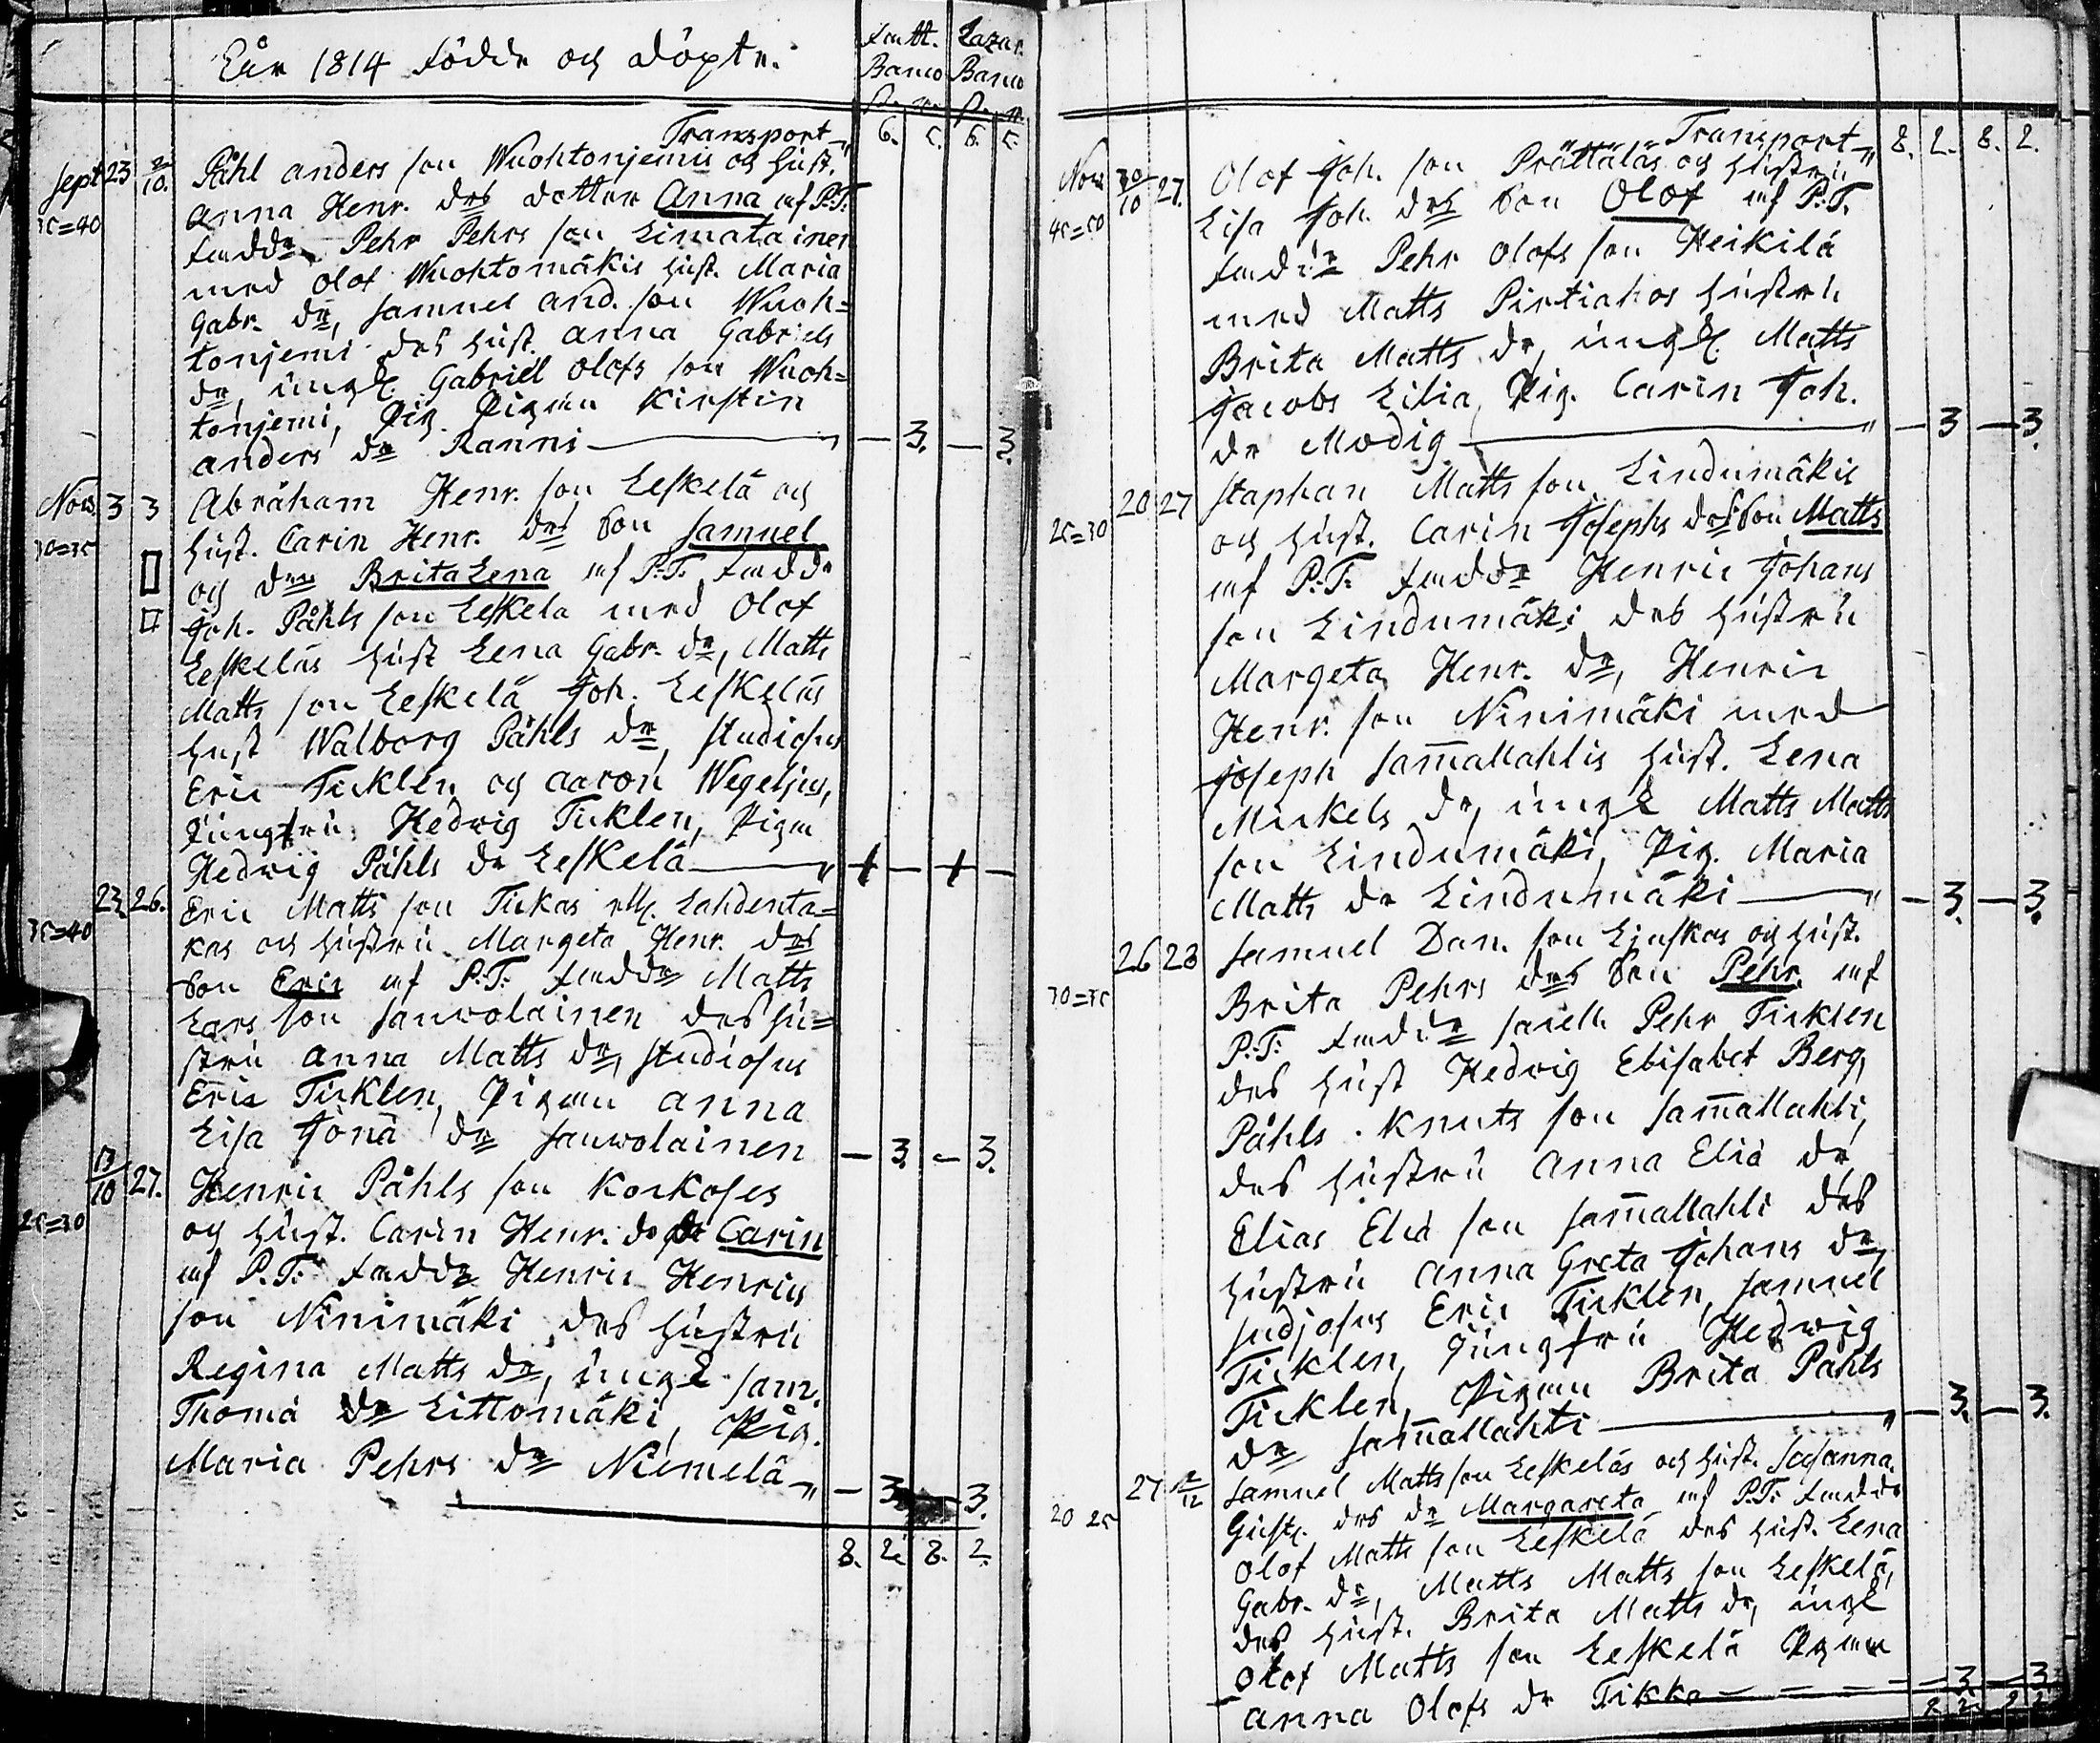 Åhr 1814 födde och döpte.
Fatt. Lazar.
Banco Banco
Transport 6. 5. 6. 5.
Sept 23 2/10. Påhl Anders son Wuohtonjemis och Hust.
35=40 Anna Henr. drs dotter Anna af P.T.
Fadd. Pehr Pehrs son Limatainen
med Olof Wuohtomäkis Hust. Maria
Gabr. dr, Samuel And. son Wuoh=
tonjemi des Hust. Anna Gabriels
dr, ungk. Gabriel Olofs son Wuoh=
tonjemi, Pigan Kirstin
Anders dr Ranni — 3. — 3.
Nov. 3 3 Abraham Henr. son Leskelä och
30=35 hust. Carin Henr. drs Son Samuel
och dr Brita Lena af P.T. fadd.
Joh. Påhls son Leskela med Olof
Leskeläs Hust Lena Gabr. dr, Matts
Matts son Leskelä Joh. Leskeläs
Hust Walborg Påhls dr, Studiosus
Eric Ticklen och Aaron Wegelius,
Jungfru Hedwig Ticklen, Pigan
Hedwig Påhls dr Leskelä
22 26. Eric Matts son Tickas ell. Lahdenta=
35=40 kas och Hustru Margeta Henr. drs
Son Eric af P.T. Fadd. Matts
Lars son Sauwolainen des Hu=
stru Anna Matts dr, Studiosus
Eric Ticklen, Pigan Anna
Lisa Jona dr Sauwolainen — 3. — 3.
13/10 27. Henric Påhls son Korkoses
25=30 och Hust. Carin Henr. ds dr Carin
af P.T. Fadd. Henric Henrics
son Ninimäki, des Hustru
Regina Matts dr, ungk Sam.
Thoma dr Littomäki, Pig.
Maria Pehrs dr Niemelä — 3. — 3.
8. 2. 8. 2.
Transport 8. 2. 8. 2.
Nov 30/10 27. Olof Joh. son Prättäläs och Hustru
45=50 Lisa Joh. drs Son Olof af P.T.
Fadd. Pehr Olofs son Heikilä
med Matts Pirtiahos Hustru
Brita Matts dr, ungk. Matts
Jacobs Lilia, Pig. Carin Joh.
dr Modig — 3 — 3.
20 27 Staphan Matts son Lindumäkis
25=30 och Hust. Carin Josephs drs Son Matts
af P.T. Fadd. Henric Johans
son Lindumäki des Hustru
Margeta Henr. dr, Henric
Henr. son Ninimäki med
Joseph Sam̅allahtis Hust. Lena
Mickels dr, ungk Matts Matts
son Lindumäki, Pig. Maria
Matts dr Lindumäki — 3. — 3.
26 28 Samuel Dan. son Liuskas och Hust.
30=35 Brita Pehrs drs Son Pehr af
P.T. Fadd. Pehr Ticklen
des Hust Hedwig Elisabet Berg,
Påhls Knuts son Sam̅allahti,
des Hustru Anna Elia dr,
Elias Elia son Sam̅allahti des
Hustru Anna Greta Johans dr,
Studiosus Eric Ticklen, Samuel
Ticklen, Jungfru Hedwig
Ticklen, Pigan Brita Påhls
dr Sam̅allahti — 3. — 3.
27 2/12 Samuel Matts son Leskeläs och Hust. Susanna
20 25 Gust. drs dr Margareta af P.T. Fadd.
Olof Matts son Leskelä des Hust. Lena
Gabr. dr, Matts Matts son Leskelä,
des Hust. Brita Matts dr, ungk
Olof Matts son Leskelä Pigan
Anna Olofs dr Tikka — 3 — 3